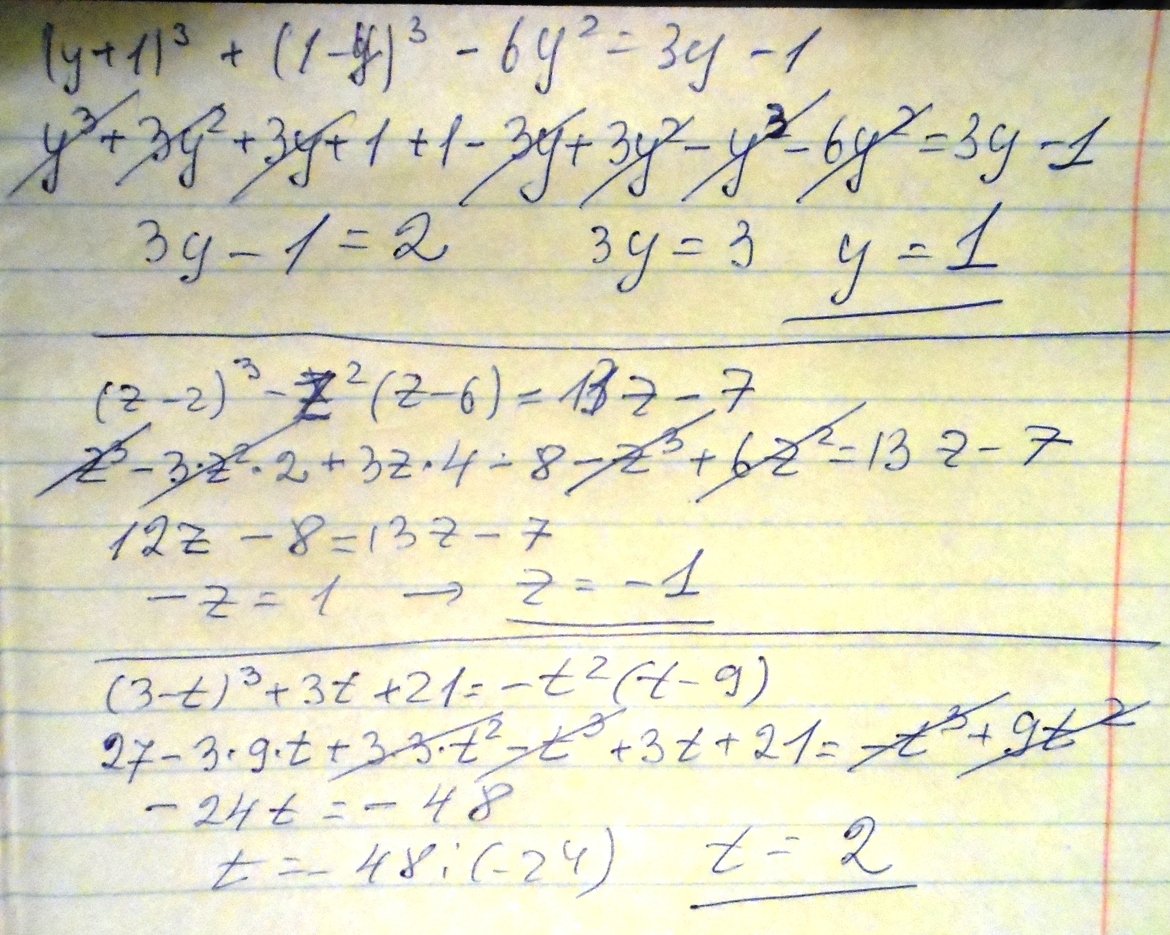 (y+1)³ + (1-y)³ - 6y² = 3y - 1
y³ + 3y² + 3y + 1 + 1 - 3y + 3y² - y³ - 6y² = 3y - 1
3y - 1 = 2 3y = 3 y = 1
(z-2)³ - z²(z-6) = 13z - 7
z³ - 3z²·2 + 3z·4 - 8 - z³ + 6z² = 13z - 7
12z - 8 = 13z - 7
-z = 1 → z = -1
(3-t)³ + 3t + 21 = -t²(t-9)
27 - 3·9·t + 3·3·t² - t³ + 3t + 21 = -t³ + 9t²
-24t = -48
t = -48:(-24) t = 2